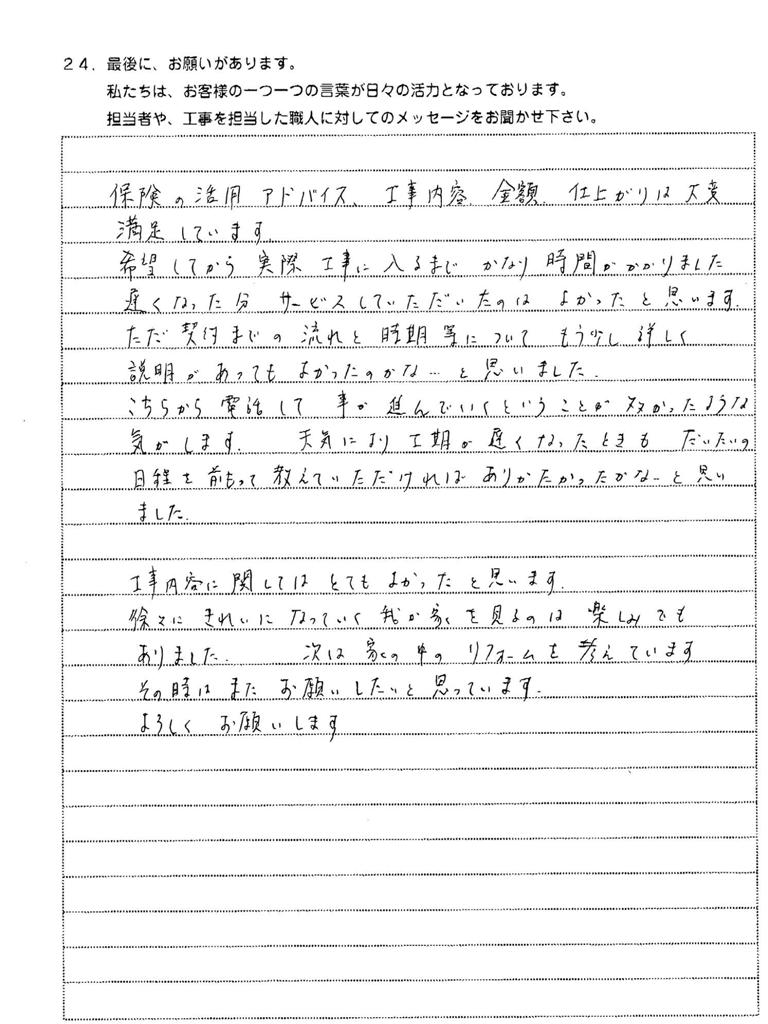 24．最後に、お願いがあります。
私たちは、お客様の一つ一つの言葉が日々の活力となっております。
担当者や、工事を担当した職人に対してのメッセージをお聞かせ下さい。
保険の活用 アドバイス、工事内容、金額、仕上がりは大変
満足しています。
希望してから 実際 工事に 入るまで かなり 時間がかかりました
遅くなった分 サービスしていただいたのは よかったと思います。
ただ 契約までの 流れと 時期等について もう少し 詳しく
説明が あっても よかったのかな… と思いました。
こちらから 電話して 事が 進んでいくということが 多かったような
気がします。 天気により 工期が 遅くなったときも だいたいの
日程を 前もって 教えていただければ ありがたかったかな… と思い
ました。
工事内容に 関しては とても よかったと思います。
徐々に きれいに なっていく 我が家を見るのは 楽しみでも
ありました。 次は 家の中の リフォームを 考えています
その時は また お願いしたいと 思っています。
よろしく お願いします